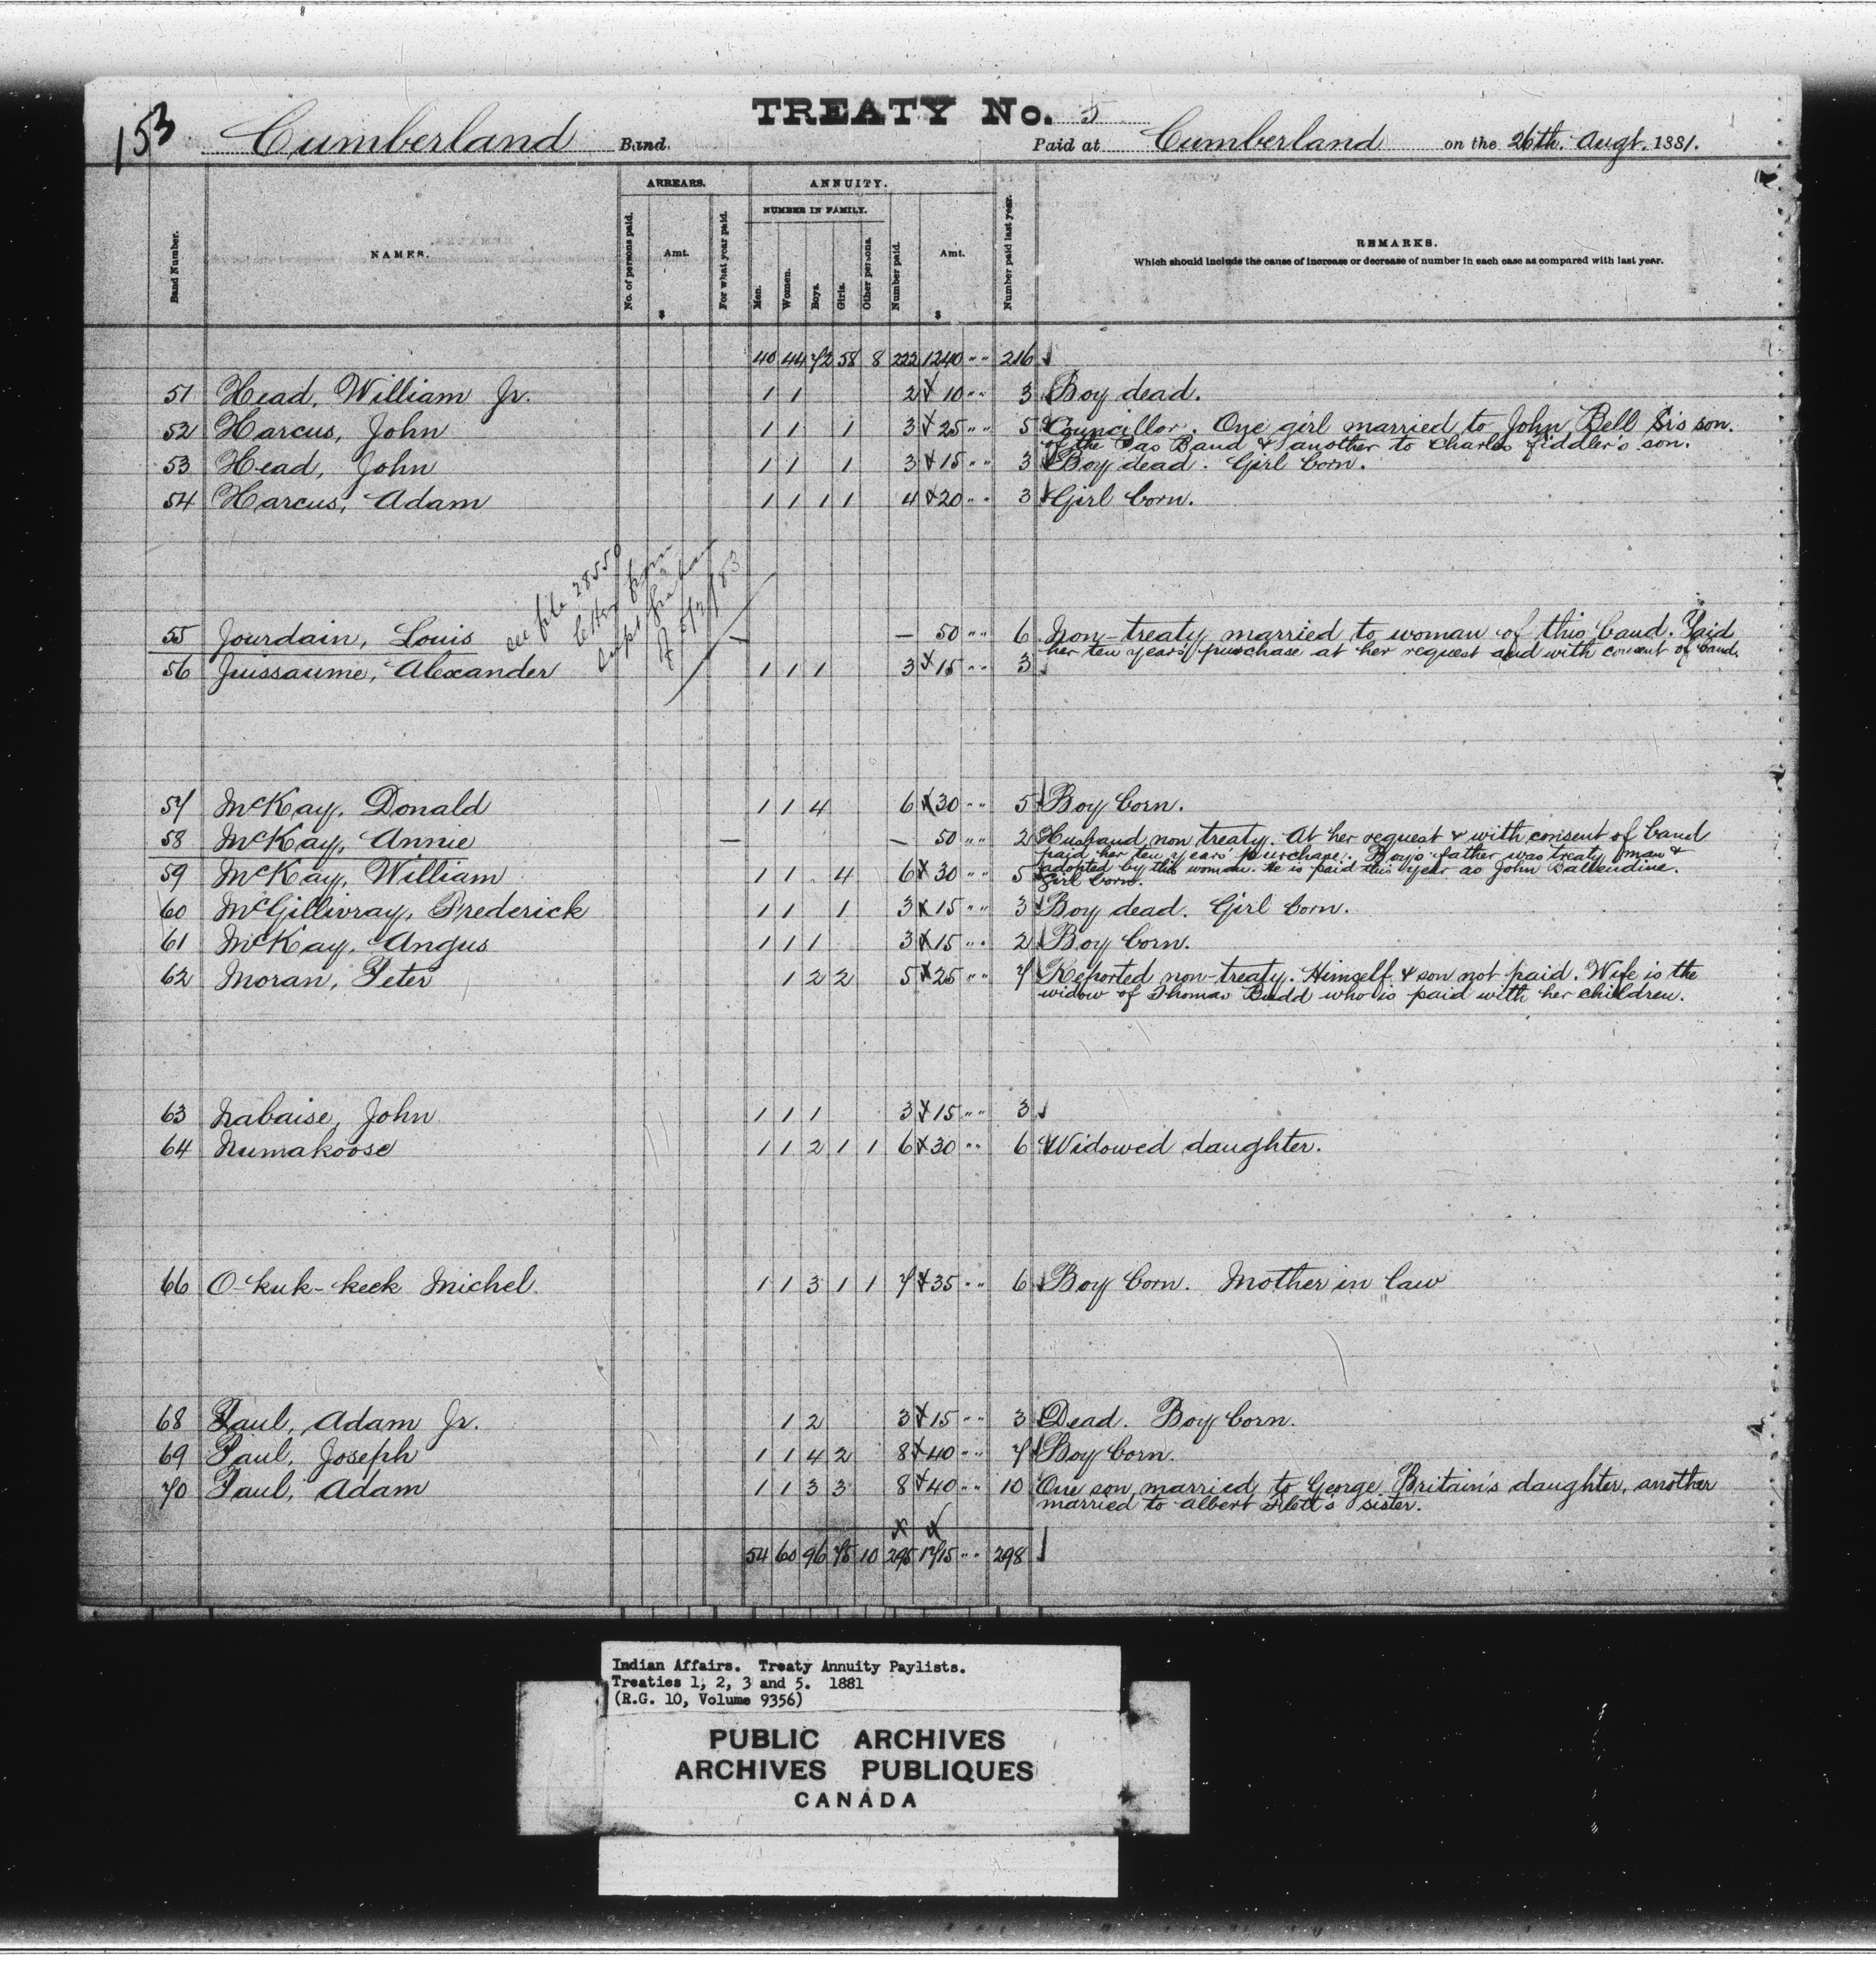 153
TREATY No. 5
Cumberland Band. Paid at Cumberland on the 26th. Augt. 1881.
Band Number.
NAMES.
ARREARS.
No. of persons paid.
Amt.
$
For what year paid.
ANNUITY.
NUMBER IN FAMILY.
Men.
Women.
Boys.
Girls.
Other persons.
Number paid.
Amt.
$
Number paid last year.
REMARKS.
Which should include the cause of increase or decrease of number in each case as compared with last year.
40 44 72 58 8 222 1240 " " 216
51 Head, William Jr. 1 1 2 10 " " 3 Boy dead.
52 Harcus, John 1 1 1 3 25 " " 5 Councillor. One girl married to John Bell Sr's son.
of the Pas Band & another to Charles Fiddler's son.
53 Head, John 1 1 1 3 15 " " 3 Boy dead. Girl born.
54 Harcus, Adam 1 1 1 1 4 20 " " 3 Girl born.
see file 28550
letter from
Supt Graham
of 5/2/83
55 Jourdain, Louis — — 50 " " 6 Non-treaty married to woman of this band. Paid
her ten years purchase at her request and with consent of band.
56 Jussaume, Alexander 1 1 1 3 15 " " 3
57 McKay, Donald 1 1 4 6 30 " " 5 Boy born.
58 McKay, Annie — — 50 " " 2 Husband non treaty. At her request & with consent of band
paid her ten years' purchase. Boy's father was treaty man &
adopted by this woman. He is paid this year as John Ballendine.
59 McKay, William 1 1 4 6 30 " " 5 Girl born.
60 McGillivray, Frederick 1 1 1 3 15 " " 3 Boy dead. Girl born.
61 McKay, Angus 1 1 1 3 15 " " 2 Boy born.
62 Moran, Peter 1 2 2 5 25 " " 7 Reported non-treaty. Himself & son not paid. Wife is the
widow of Thomas Budd who is paid with her children.
63 Nabaise, John 1 1 1 3 15 " " 3
64 Numakoose 1 1 2 1 1 6 30 " " 6 Widowed daughter.
66 O-kuk-keek Michel. 1 1 3 1 1 7 35 " " 6 Boy born. Mother in law
68 Paul, Adam Jr. 1 2 3 15 " " 3 Dead. Boy born.
69 Paul, Joseph 1 1 4 2 8 40 " " 7 Boy born.
70 Paul, Adam 1 1 3 3 8 40 " " 10 One son married to George Britain's daughter, another
married to Albert Flett's sister.
54 60 96 75 10 295 1715 " " 298
Indian Affairs. Treaty Annuity Paylists.
Treaties 1, 2, 3 and 5. 1881
(R.G. 10, Volume 9356)
PUBLIC ARCHIVES
ARCHIVES PUBLIQUES
CANADA